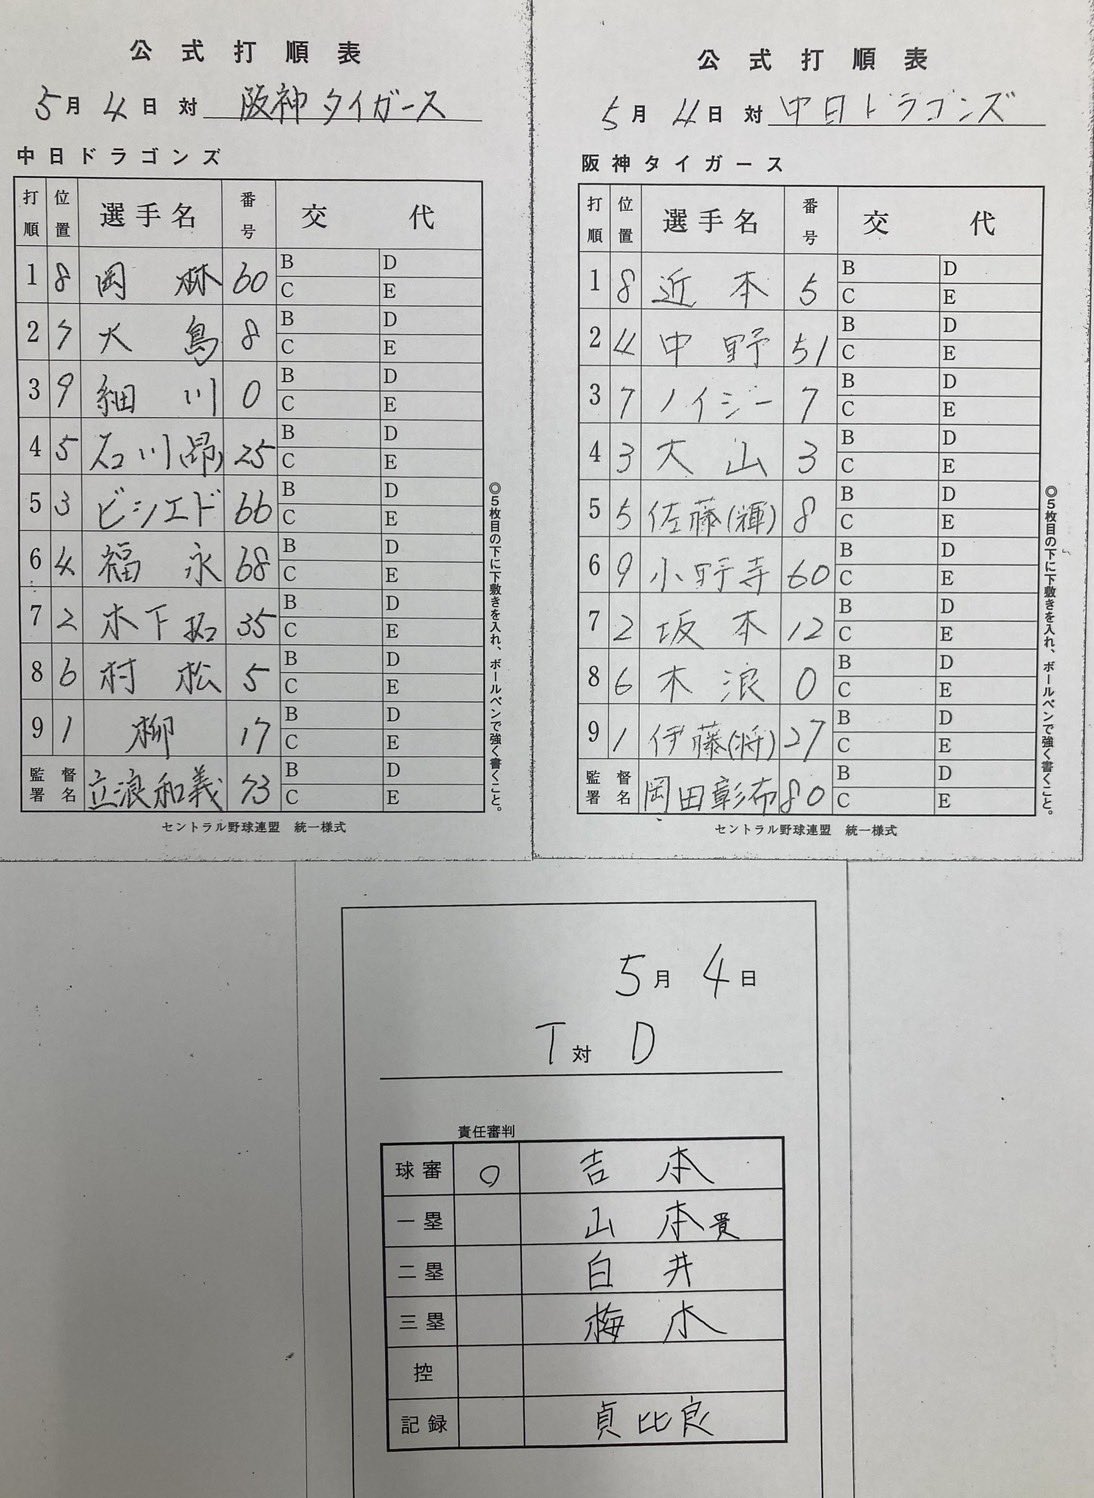 公式打順表
5月4日対 阪神タイガース
中日ドラゴンズ
打順 位置 選手名 番号 交代
1 8 岡林 60 B D C E
2 7 大島 8 B D C E
3 9 細川 0 B D C E
4 5 石川(昂) 25 B D C E
5 3 ビシエド 66 B D C E
6 4 福永 68 B D C E
7 2 木下拓 35 B D C E
8 6 村松 5 B D C E
9 1 柳 17 B D C E
監督署名 立浪和義 73 B D C E
セントラル野球連盟 統一様式
◎5枚目の下に下敷きを入れ、ボールペンで強く書くこと。
公式打順表
5月4日対 中日ドラゴンズ
阪神タイガース
打順 位置 選手名 番号 交代
1 8 近本 5 B D C E
2 4 中野 51 B D C E
3 7 ノイジー 7 B D C E
4 3 大山 3 B D C E
5 5 佐藤(輝) 8 B D C E
6 9 小野寺 60 B D C E
7 2 坂本 12 B D C E
8 6 木浪 0 B D C E
9 1 伊藤(将) 27 B D C E
監督署名 岡田彰布 80 B D C E
セントラル野球連盟 統一様式
◎5枚目の下に下敷きを入れ、ボールペンで強く書くこと。
5月4日
T対D
責任審判
球審 ○ 吉本
一塁 山本貴
二塁 白井
三塁 梅木
控
記録 貞比良